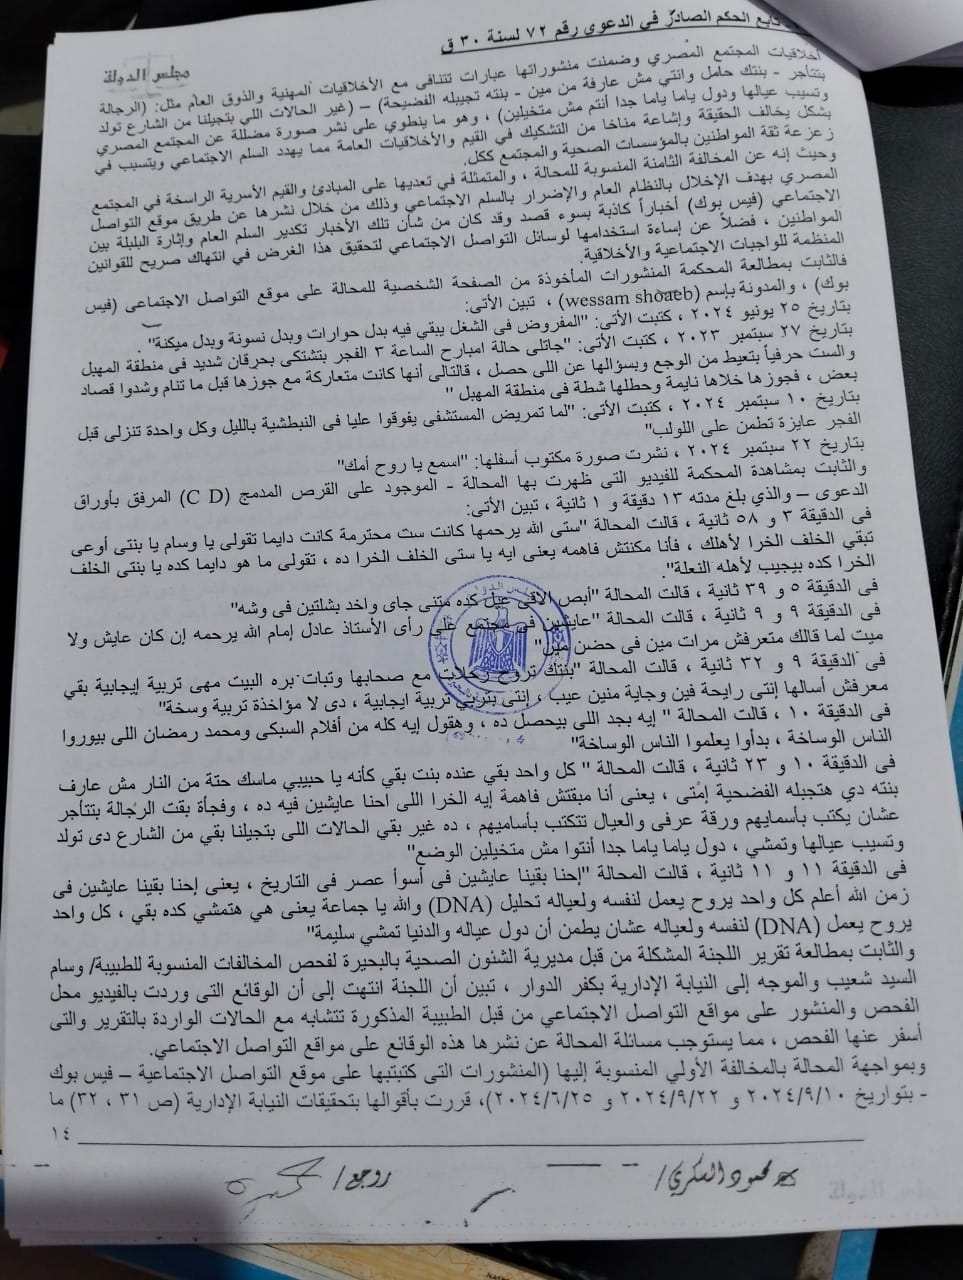 تابع الحكم الصادر في الدعوى رقم ٧٢ لسنة ٣٠ ق
مجلس الدولة
أخلاقيات المجتمع المصري وضمنت منشوراتها عبارات تتنافى مع الأخلاقيات المهنية والذوق العام مثل: (الرجالة
بتتأجر - بنتك حامل وانتي مش عارفة من مين - بنته تجيبله الفضيحة) – (غير الحالات اللي بتجيلنا من الشارع تولد
وتسيب عيالها ودول ياما ياما جدا أنتم مش متخيلين) ، وهو ما ينطوي على نشر صورة مضللة عن المجتمع المصري
بشكل يخالف الحقيقة وإشاعة مناخا من التشكيك في القيم والأخلاقيات العامة مما يهدد السلم الاجتماعي ويتسبب في
زعزعة ثقة المواطنين بالمؤسسات الصحية والمجتمع ككل.
وحيث إنه عن المخالفة الثامنة المنسوبة للمحالة ، والمتمثلة في تعديها على المبادئ والقيم الأسرية الراسخة في المجتمع
المصري بهدف الإخلال بالنظام العام والإضرار بالسلم الاجتماعي وذلك من خلال نشرها عن طريق موقع التواصل
الاجتماعي (فيس بوك) أخباراً كاذبة بسوء قصد وقد كان من شأن تلك الأخبار تكدير السلم العام وإثارة البلبلة بين
المواطنين ، فضلاً عن إساءة استخدامها لوسائل التواصل الاجتماعي لتحقيق هذا الغرض في انتهاك صريح للقوانين
المنظمة للواجبات الاجتماعية والأخلاقية.
فالثابت بمطالعة المحكمة المنشورات المأخوذة من الصفحة الشخصية للمحالة على موقع التواصل الاجتماعى (فيس
بوك) ، والمدونة بإسم (wessam shoaeb) ، تبين الأتى:
بتاريخ ٢٥ يونيو ٢٠٢٤ ، كتبت الأتى: "المفروض فى الشغل يبقي فيه بدل حوارات وبدل نسونة وبدل ميكنة" .
بتاريخ ٢٧ سبتمبر ٢٠٢٣ ، كتبت الأتى: "جاتلى حالة امبارح الساعة ٣ الفجر بتشتكى بحرقان شديد فى منطقة المهبل
والست حرفياً بتعيط من الوجع وبسؤالها عن اللى حصل ، قالتالى أنها كانت متعاركة مع جوزها قبل ما تنام وشدوا قصاد
بعض ، فجوزها خلاها نايمة وحطلها شطة فى منطقة المهبل "
بتاريخ ١٠ سبتمبر ٢٠٢٤ ، كتبت الأتى: "لما تمريض المستشفى يفوقوا عليا فى النبطشية بالليل وكل واحدة تنزلى قبل
الفجر عايزة تطمن على اللولب"
بتاريخ ٢٢ سبتمبر ٢٠٢٤ ، نشرت صورة مكتوب أسفلها: "اسمع يا روح أمك"
والثابت بمشاهدة المحكمة للفيديو التى ظهرت بها المحالة - الموجود على القرص المدمج (C D) المرفق بأوراق
الدعوى – والذي بلغ مدته ١٣ دقيقة و ١ ثانية ، تبين الأتى:
فى الدقيقة ٣ و ٥٨ ثانية ، قالت المحالة "ستى الله يرحمها كانت ست محترمة كانت دايما تقولى يا وسام يا بنتى أوعى
تبقي الخلف الخرا لأهلك ، فأنا مكنتش فاهمه يعنى ايه يا ستى الخلف الخرا ده ، تقولى ما هو دايما كده يا بنتى الخلف
الخرا كده بيجيب لأهله النعلة".
فى الدقيقة ٥ و ٣٩ ثانية ، قالت المحالة "أبص الاقى عيل كده متنى جاى واخد بشلتين فى وشه"
فى الدقيقة ٩ و ٩ ثانية ، قالت المحالة "عايشين فى مجتمع على رأى الأستاذ عادل إمام الله يرحمه إن كان عايش ولا
ميت لما قالك متعرفش مرات مين فى حضن مين"
فى الدقيقة ٩ و ٣٢ ثانية ، قالت المحالة "بنتك تروح رحلات مع صحابها وتبات بره البيت مهى تربية إيجابية بقي
معرفش أسالها إنتى رايحة فين وجاية منين عيب ، إنتى بتربي تربية ايجابية ، دى لا مؤاخذة تربية وسخة"
فى الدقيقة ١٠ ، قالت المحالة " إيه بجد اللى بيحصل ده ، وهقول إيه كله من أفلام السبكى ومحمد رمضان اللى بيوروا
الناس الوساخة ، بدأوا يعلموا الناس الوساخة"
فى الدقيقة ١٠ و ٢٣ ثانية ، قالت المحالة " كل واحد بقي عنده بنت بقي كأنه يا حبيبي ماسك حتة من النار مش عارف
بنته دي هتجبله الفضحية إمتى ، يعنى أنا مبقتش فاهمة إيه الخرا اللى احنا عايشين فيه ده ، وفجأة بقت الرجالة بتتأجر
عشان يكتب بأسمايهم ورقة عرفى والعيال تتكتب بأساميهم ، ده غير بقي الحالات اللى بتجيلنا بقي من الشارع دى تولد
وتسيب عيالها وتمشي ، دول ياما ياما جدا أنتوا مش متخيلين الوضع"
فى الدقيقة ١١ و ١١ ثانية ، قالت المحالة "إحنا بقينا عايشين فى أسوأ عصر فى التاريخ ، يعنى إحنا بقينا عايشين فى
زمن الله أعلم كل واحد يروح يعمل لنفسه ولعياله تحليل (DNA) والله يا جماعة يعنى هي هتمشي كده بقي ، كل واحد
يروح يعمل (DNA) لنفسه ولعياله عشان يطمن أن دول عياله والدنيا تمشي سليمة"
والثابت بمطالعة تقرير اللجنة المشكلة من قبل مديرية الشئون الصحية بالبحيرة لفحص المخالفات المنسوبة للطبيبة/ وسام
السيد شعيب والموجه إلى النيابة الإدارية بكفر الدوار ، تبين أن اللجنة انتهت إلى أن الوقائع التى وردت بالفيديو محل
الفحص والمنشور على مواقع التواصل الاجتماعي من قبل الطبيبة المذكورة تتشابه مع الحالات الواردة بالتقرير والتى
أسفر عنها الفحص ، مما يستوجب مسائلة المحالة عن نشرها هذه الوقائع على مواقع التواصل الاجتماعي.
وبمواجهة المحالة بالمخالفة الأولي المنسوبة إليها (المنشورات التى كتبتبها على موقع التواصل الاجتماعية – فيس بوك
- بتواريخ ٢٠٢٤/٩/١٠ و ٢٠٢٤/٩/٢٢ و ٢٠٢٤/٦/٢٥)، قررت بأقوالها بتحقيقات النيابة الإدارية (ص ٣١ ، ٣٢) ما
١٤
محمود السكري/
روجع/